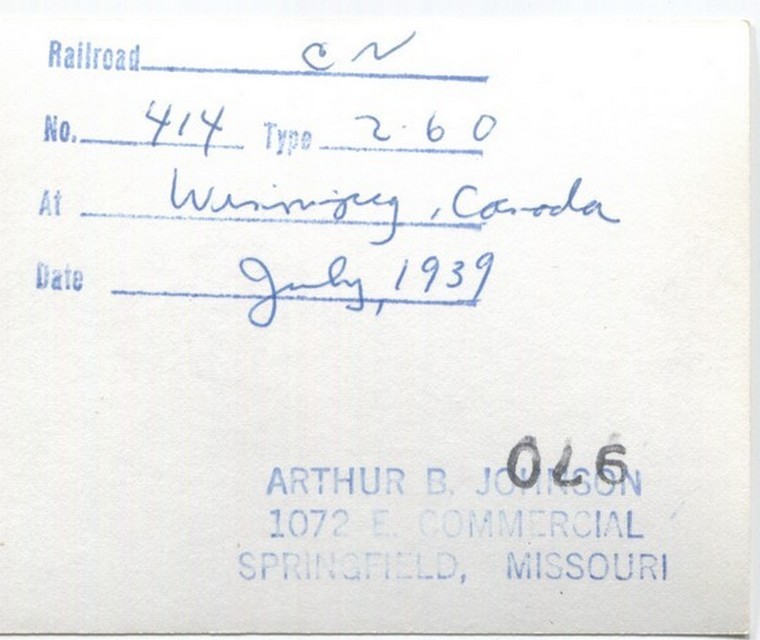 Railroad CN
No. 414 Type 2-6-0
At Winnipeg, Canada
Date July, 1939
970
ARTHUR B. JOHNSON
1072 E. COMMERCIAL
SPRINGFIELD, MISSOURI